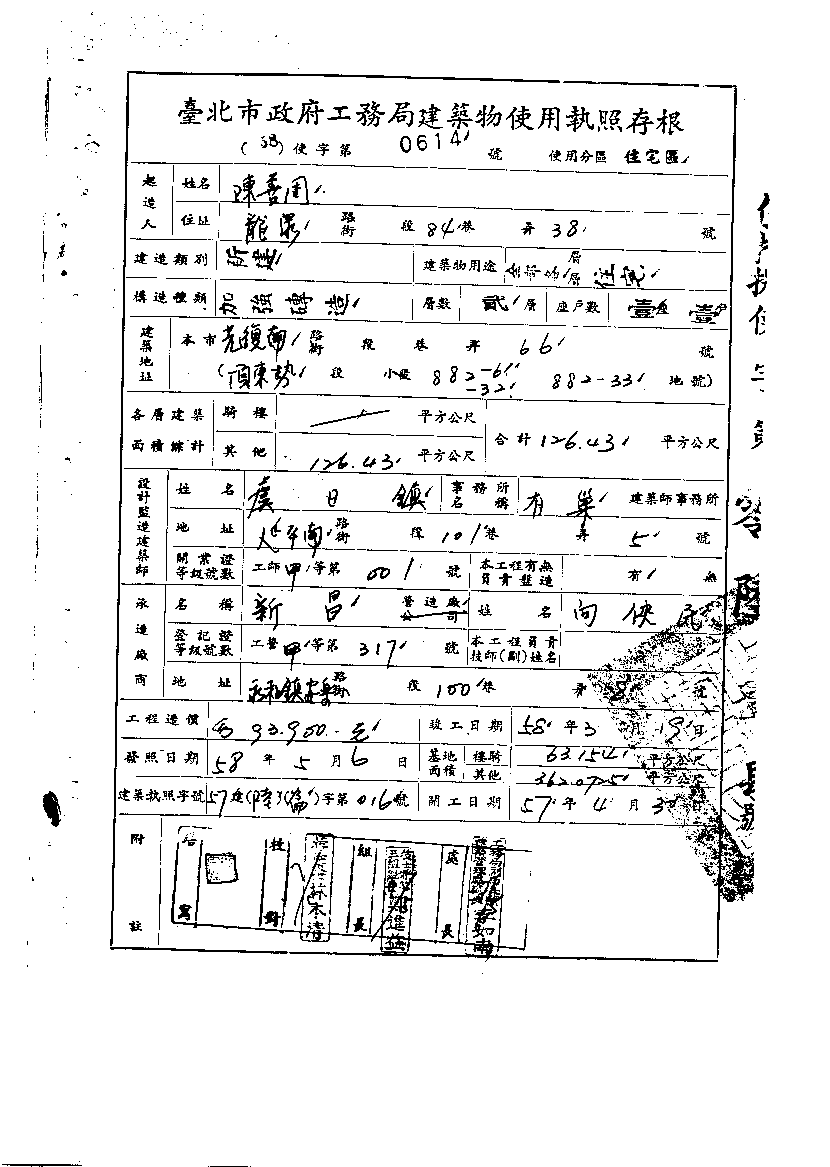 臺北市政府工務局建築物使用執照存根
(58)使字第 0614 號 使用分區 住宅區
起造人 姓名 陳善周
住址 龍泉 路街 段 84巷 弄 38 號
建造類別 新建 建築物用途 層 層 住宅
構造種類 加強磚造 層數 貳層 座戶數 壹座 壹戶
建築地址 本市 光復南 路街 段 巷 弄 66 號
(頂東勢 段 小段 882-61 -32 882-33 地號)
各層建築面積總計 騎樓 平方公尺 合計 126.43 平方公尺
其他 126.43 平方公尺
設計監造建築師 姓名 虞日鎮 事務所名稱 有巢 建築師事務所
地址 延平南 路街 段 101巷 弄 5 號
開業證等級號數 工師 甲 等第 001 號 本工程有無負責監造 有 無
承造廠商 名稱 新昌 營造廠公司 姓名
登記證等級號數 工營 甲 等第 317 號 本工程負責技師(副)姓名
地址 永和鎮 路街 段 100巷 弄 8 號
工程造價 93,900元 竣工日期 58年3月19日
發照日期 58年5月6日 基地面積 樓騎 63.154 平方公尺
其他 362.0725 平方公尺
建築執照字號 57建( )( )字第 016 號 開工日期 57年4月3日
附註 核對 林本清 組長 處長 李如南